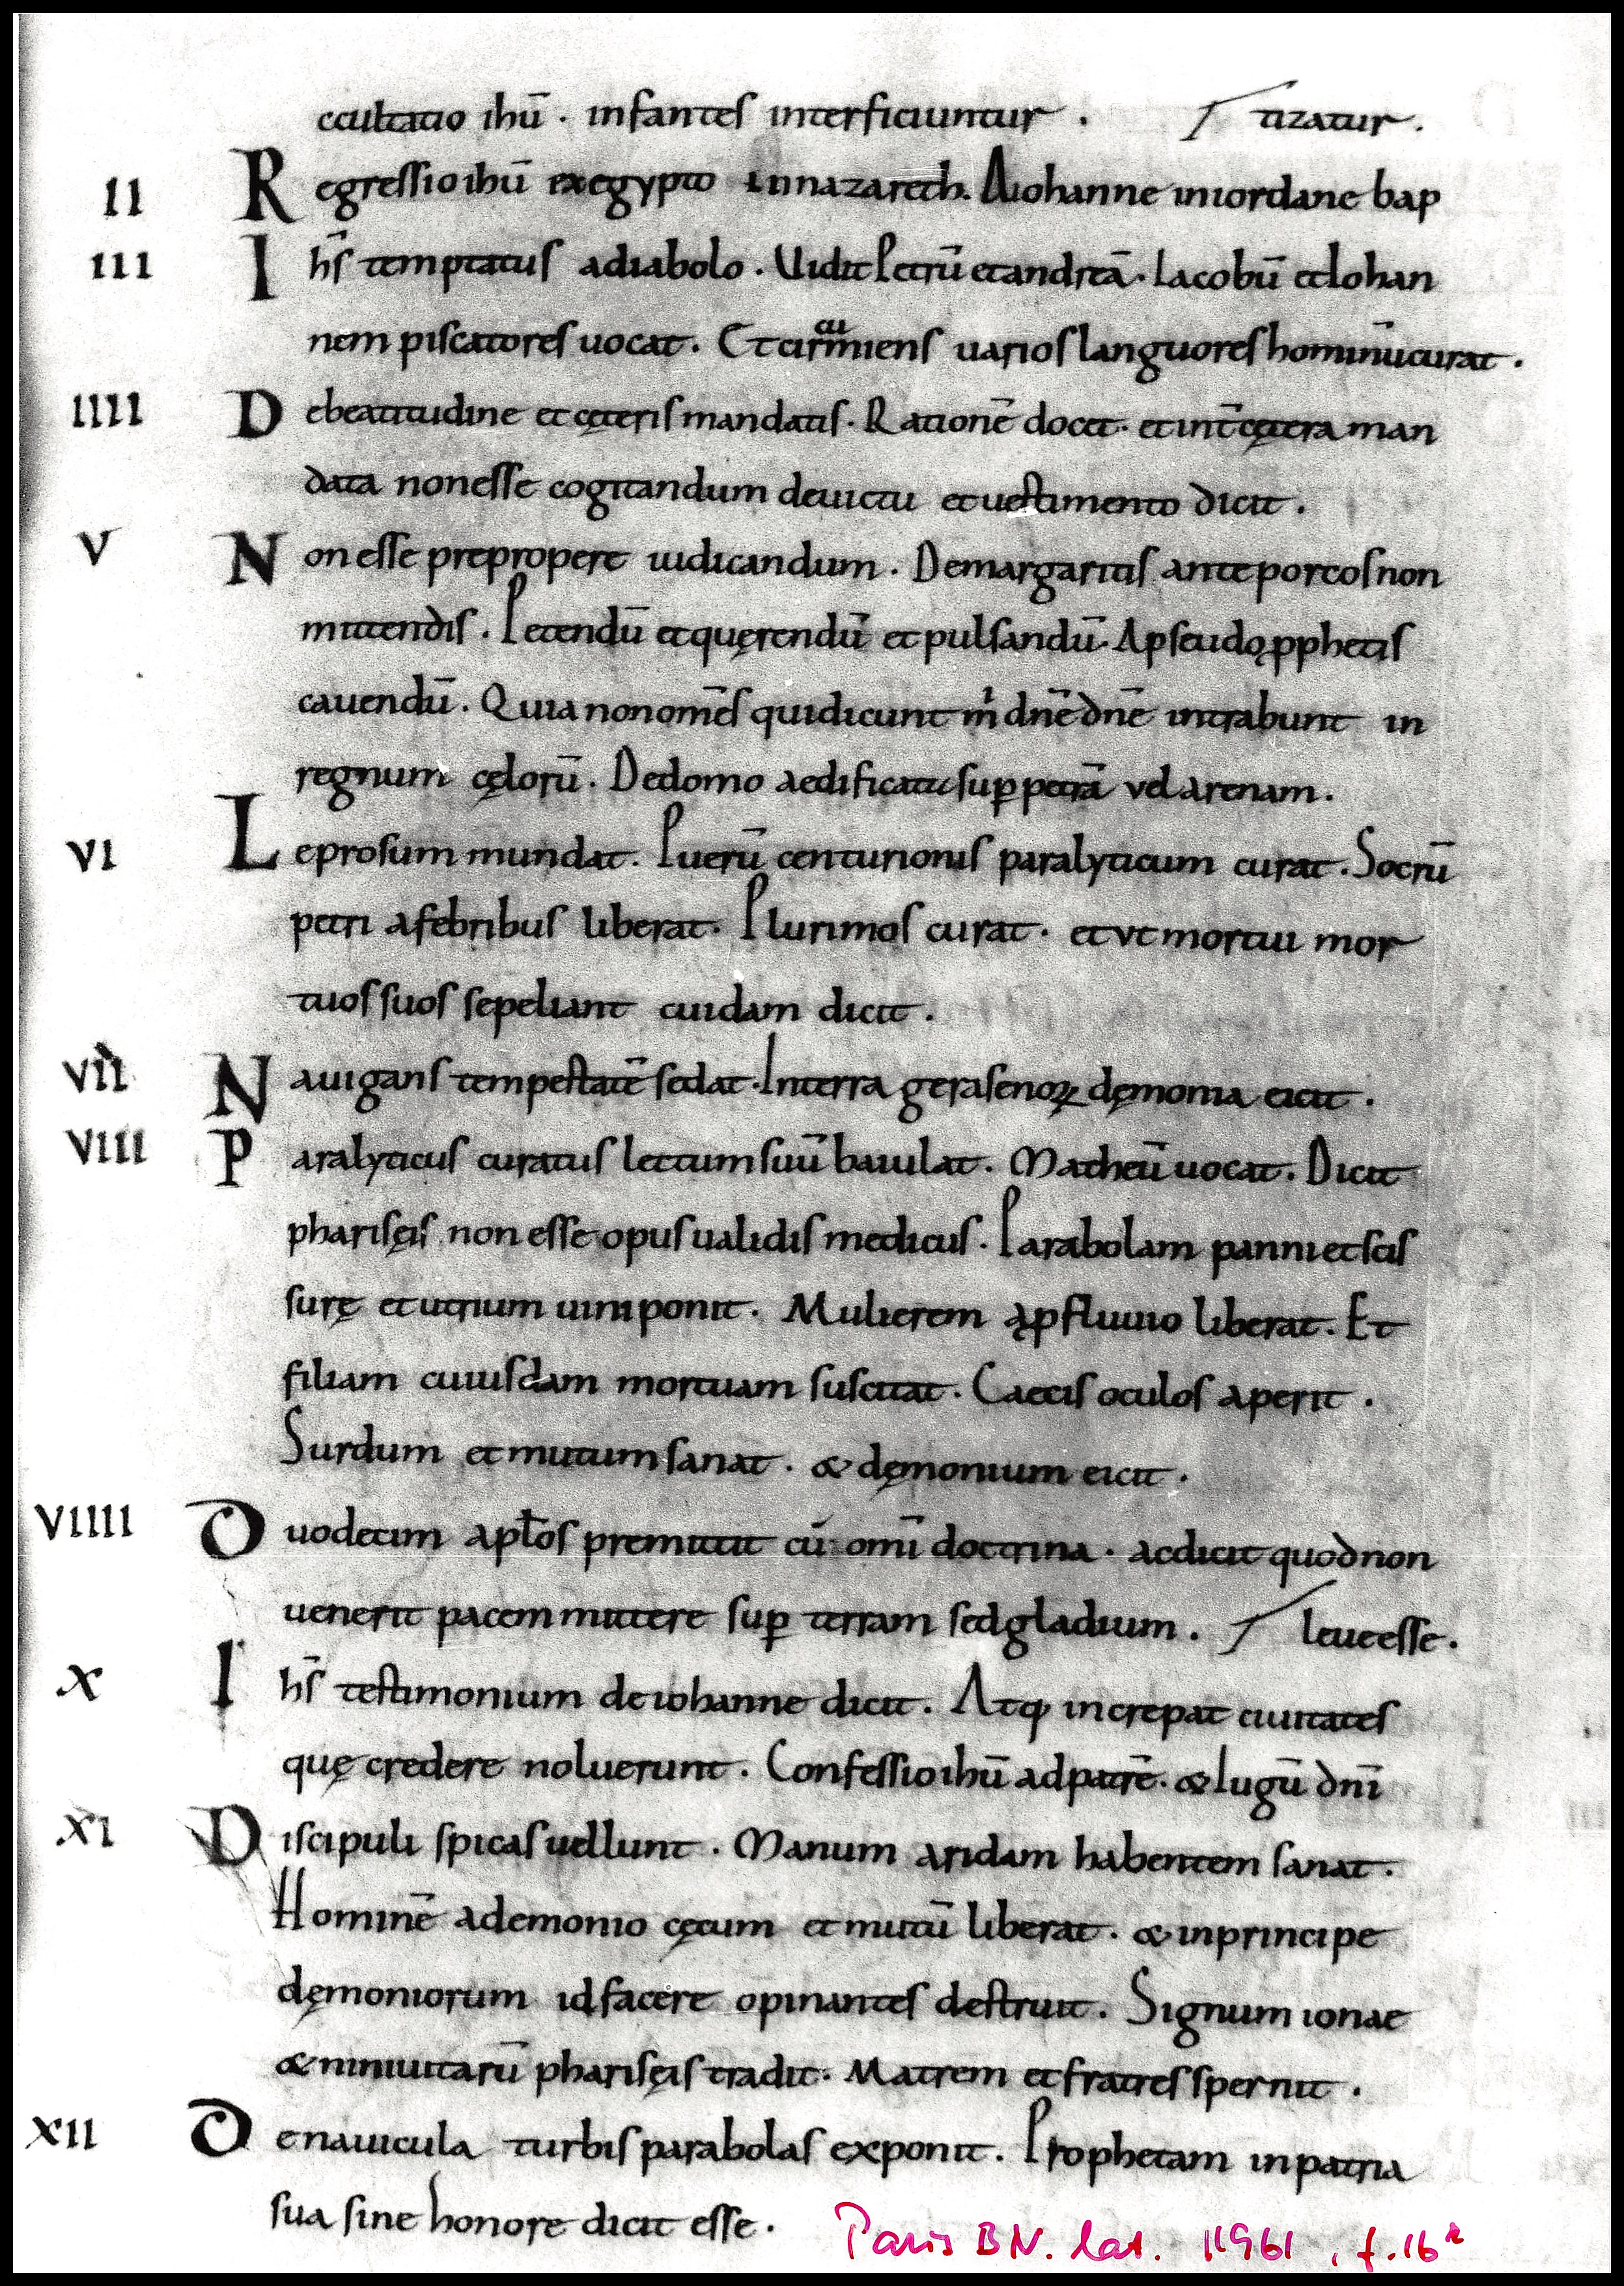 ccultatio ihū . infantes interficiuntur . tizatur .
II R egressio ihū ex egypto In nazareth. A iohanne in iordane bap
III I hs̄ temptatus a diabolo . Uidit Petrū et andreā . Iacobū et Iohan
nem piscatores uocat . Et circumiens uarios languores hominū curat .
IIII D e beatitudine et cęteris mandatis . Rationē docet . et int̄ cętera man
data non esse cogitandum de uictu et uestimento dicit .
V N on esse prepropere iudicandum . De margaritis ante porcos non
mittendis . Petendū et quęrendū et pulsandū . A pseudo ꝓphetis
cauendū . Quia non om̄es qui dicunt m̍ dn̄e dn̄e intrabunt in
regnum cęlorū . De domo aedificata sup̱ petrā vel arenam .
VI L eprosum mundat . Puerū centurionis paralyticum curat . Socrū
petri a febribus liberat . Plurimos curat . et vt mortui mor
tuos suos sepeliant cuidam dicit .
VII N auigans tempestatē sedat . In terra gerasenoꝝ dęmonia eicit .
VIII P aralyticus curatus lectum suū baiulat . Matheū uocat . Dicit
pharisęis non esse opus ualidis medicus . Parabolam panni et scis
surę et utrium uini ponit . Mulierem a ꝓfluuio liberat . Et
filiam cuiusdam mortuam suscitat . Caecis oculos aperit .
Surdum et mutum sanat . & dęmonium eicit .
VIIII D uodecim apl̄os premittit cū omī doctrina . ac dicit quod non
uenerit pacem mittere sup̱ terram sed gladium . leue esse .
X I hs̄ testimonium de iohanne dicit . Atq; increpat ciuitates
quę credere noluerunt . Confessio ihū ad patrē . & Iugū dnī
XI D iscipuli spicas uellunt . Manum aridam habentem sanat .
Hominē a demonio cęcum et mutū liberat . & in principe
dęmoniorum id facere opinantes destruit . Signum ionae
& niniuitarū pharisęis tradit . Matrem et fratres spernit .
XII D e nauicula turbis parabolas exponit . Prophetam in patria
sua sine honore dicit esse .
Paris BN. lat. 11961, f. 16ʳ